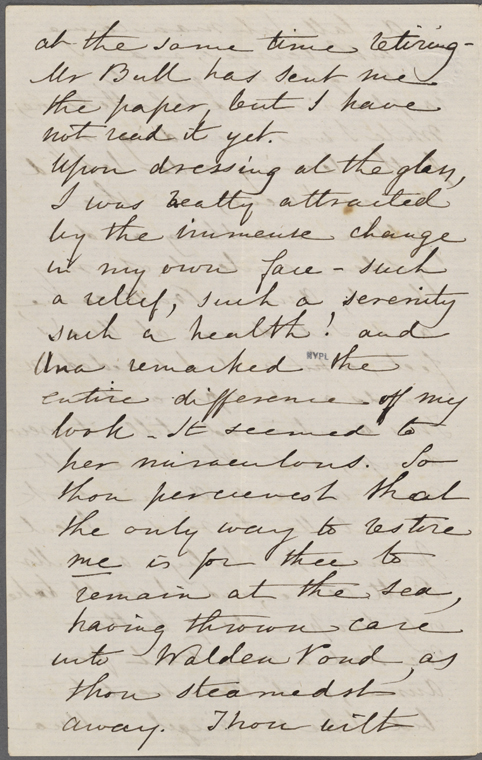 at the same time retiring -
Mr Bull has sent me
the paper, but I have
not read it yet.
Upon dressing at the glass,
I was really attracted
by the immense change
in my own face - such
a relief, such a serenity
such a health! and
Una remarked the
NYPL
entire difference of my
look - It seemed to
her miraculous. So
thou percievest that
the only way to restore
me is for thee to
remain at the sea,
having thrown care
into Walden Pond, as
thou steamedst
away. Thou wilt